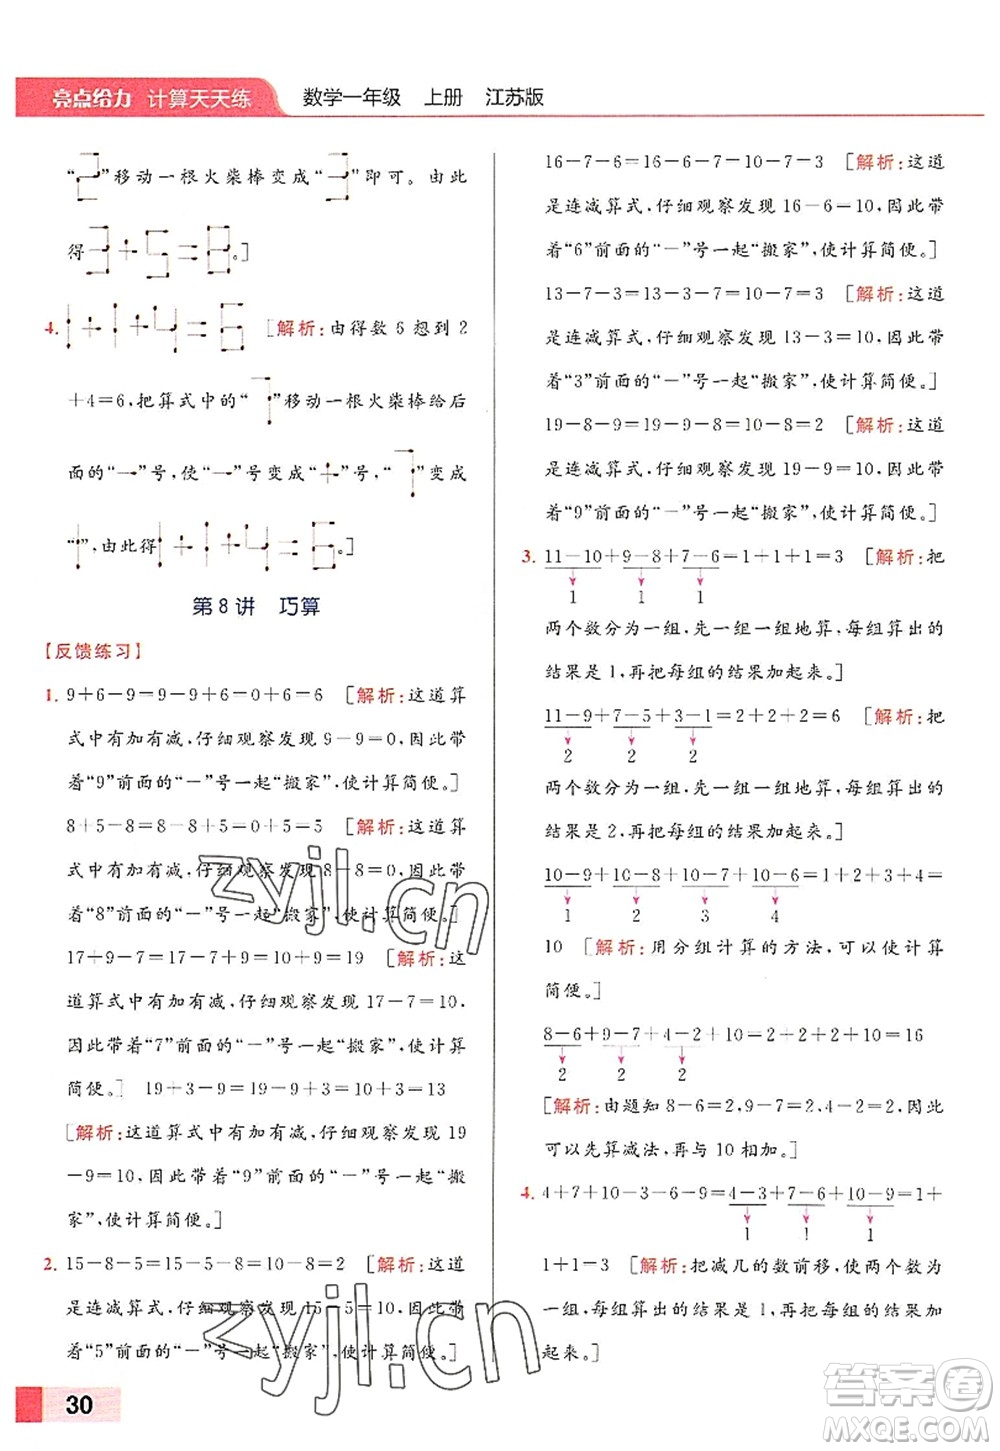 亮点给力 计算天天练 数学一年级 上册 江苏版
“2”移动一根火柴棒变成“3”即可。由此
得3+5=8。]
4. 1+1+4=6 [解析:由得数 6 想到 2
+4=6,把算式中的“7”移动一根火柴棒给后
面的“-”号,“-”号变成“+”号,“7”变成
“1”,由此得1+1+4=6。]
第 8 讲 巧算
【反馈练习】
1. 9+6-9=9-9+6=0+6=6 [解析:这道算
式中有加有减,仔细观察发现 9-9=0,因此带
着“9”前面的“-”号一起“搬家”,使计算简便。]
8+5-8=8-8+5=0+5=5 [解析:这道算
式中有加有减,仔细观察发现 8-8=0,因此带
着“8”前面的“-”号一起“搬家”,使计算简便。]
17+9-7=17-7+9=10+9=19 [解析:这
道算式中有加有减,仔细观察发现 17-7=10,
因此带着“7”前面的“-”号一起“搬家”,使计算
简便。] 19+3-9=19-9+3=10+3=13
[解析:这道算式中有加有减,仔细观察发现 19
-9=10,因此带着“9”前面的“-”号一起“搬
家”,使计算简便。]
2. 15-8-5=15-5-8=10-8=2 [解析:这道
是连减算式,仔细观察发现 15-5=10,因此带
着“5”前面的“-”号一起“搬家”,使计算简便。]
16-7-6=16-6-7=10-7=3 [解析:这道
是连减算式,仔细观察发现 16-6=10,因此带
着“6”前面的“-”号一起“搬家”,使计算简便。]
13-7-3=13-3-7=10-7=3 [解析:这道
是连减算式,仔细观察发现 13-3=10,因此带
着“3”前面的“-”号一起“搬家”,使计算简便。]
19-8-9=19-9-8=10-8=2 [解析:这道
是连减算式,仔细观察发现 19-9=10,因此带
着“9”前面的“-”号一起“搬家”,使计算简便。]
3. 11-10+9-8+7-6=1+1+1=3 [解析:把
1 1 1
两个数分为一组,先一组一组地算,每组算出的
结果是 1,再把每组的结果加起来。]
11-9+7-5+3-1=2+2+2=6 [解析:把
2 2 2
两个数分为一组,先一组一组地算,每组算出的
结果是 2,再把每组的结果加起来。]
10-9+10-8+10-7+10-6=1+2+3+4=
1 2 3 4
10 [解析:用分组计算的方法,可以使计算
简便。]
8-6+9-7+4-2+10=2+2+2+10=16
2 2 2
[解析:由题知 8-6=2,9-7=2,4-2=2,因此
可以先算减法,再与 10 相加。]
4. 4+7+10-3-6-9=4-3+7-6+10-9=1+
1 1 1
1+1=3 [解析:把减几的数前移,使两个数为
一组,每组算出的结果是 1,再把每组的结果加
起来。]
30
zyjl.cn
zyjl.cn
答案圈
MXQE.COM